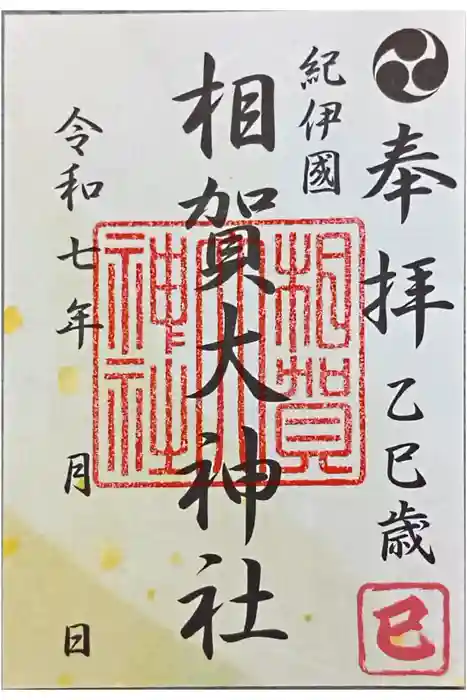 奉拝
乙巳歳
巳
紀伊國
相賀大神社
相賀大神社
令和七年 月 日